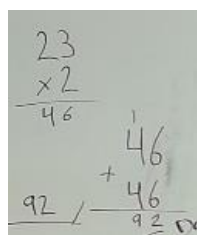 23
×2
46
1
46
+
46
92 /
92